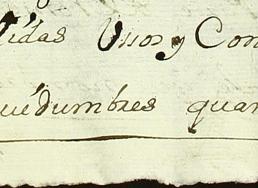 lidas Usos y Con
uedumbres quan